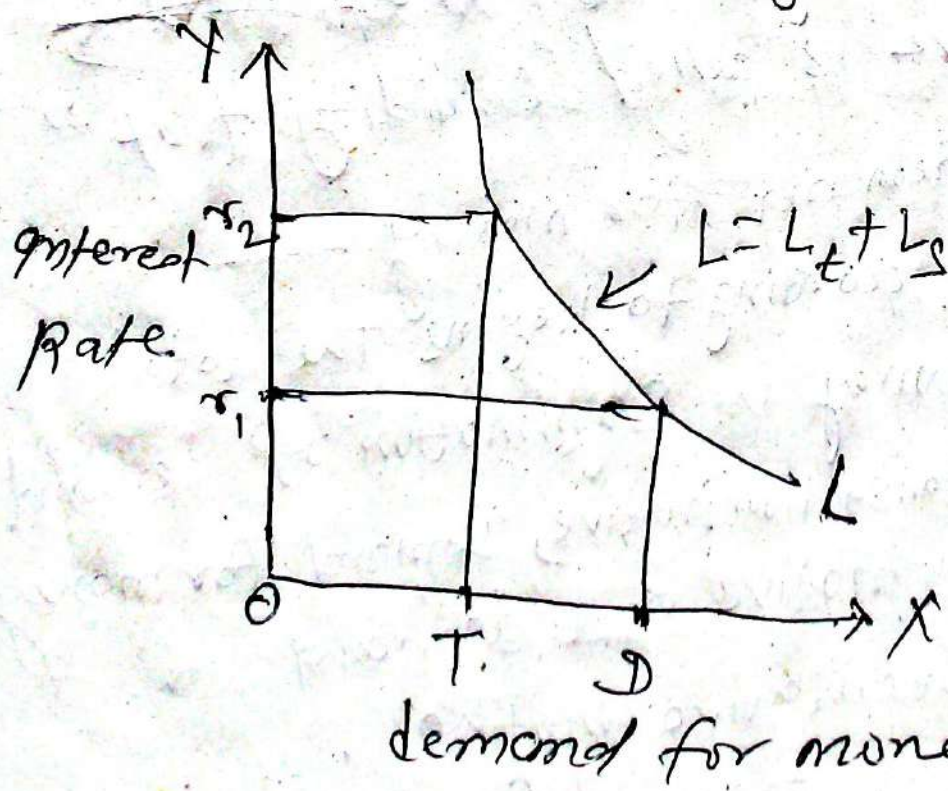 Y
r2
Interest
Rate.
L = Lt + Ls
r1
L
O
T.
D
X
demand for mone